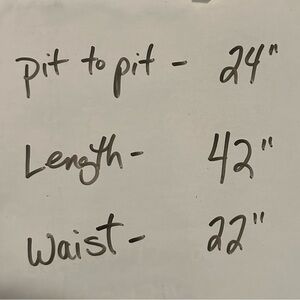 pit to pit - 24"
Length - 42"
Waist - 22"